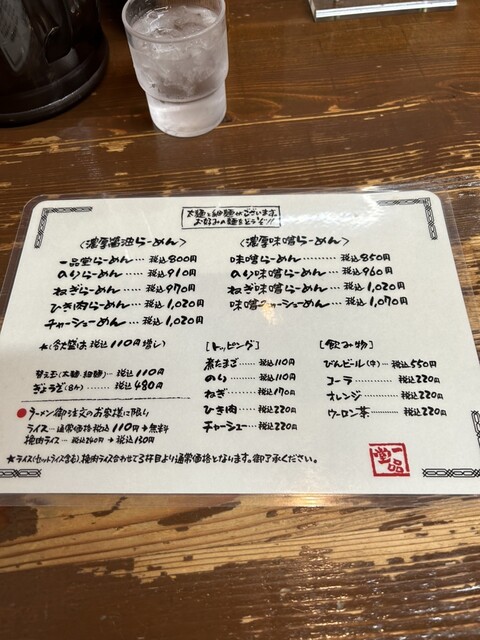 太麺と細麺がございます。
お好みの麺をどうぞ!!
〈濃厚醤油らーめん〉
一品堂らーめん……税込800円
のりらーめん………税込910円
ねぎらーめん………税込970円
ひき肉らーめん……税込1,020円
チャーシューめん…税込1,020円
★(各大盛は 税込110円増し)
〈濃厚味噌らーめん〉
味噌らーめん………税込850円
のり味噌らーめん…税込960円
ねぎ味噌らーめん…税込1,020円
味噌チャーシューめん…税込1,070円
替え玉(太麺・細麺)…税込110円
ぎょうざ(8ケ)…税込480円
●ラーメン御注文のお客様に限り
ライス…通常価格税込110円→無料
挽肉ライス…税込240円→税込130円
[トッピング]
煮たまご……税込110円
のり…………税込110円
ねぎ…………税込170円
ひき肉………税込220円
チャーシュー…税込220円
[飲み物]
びんビール(中)…税込550円
コーラ…………税込220円
オレンジ………税込220円
ウーロン茶……税込220円
★ライス(セットライス含む)、挽肉ライス合わせて3杯目より通常価格となります。御了承ください。
一品堂